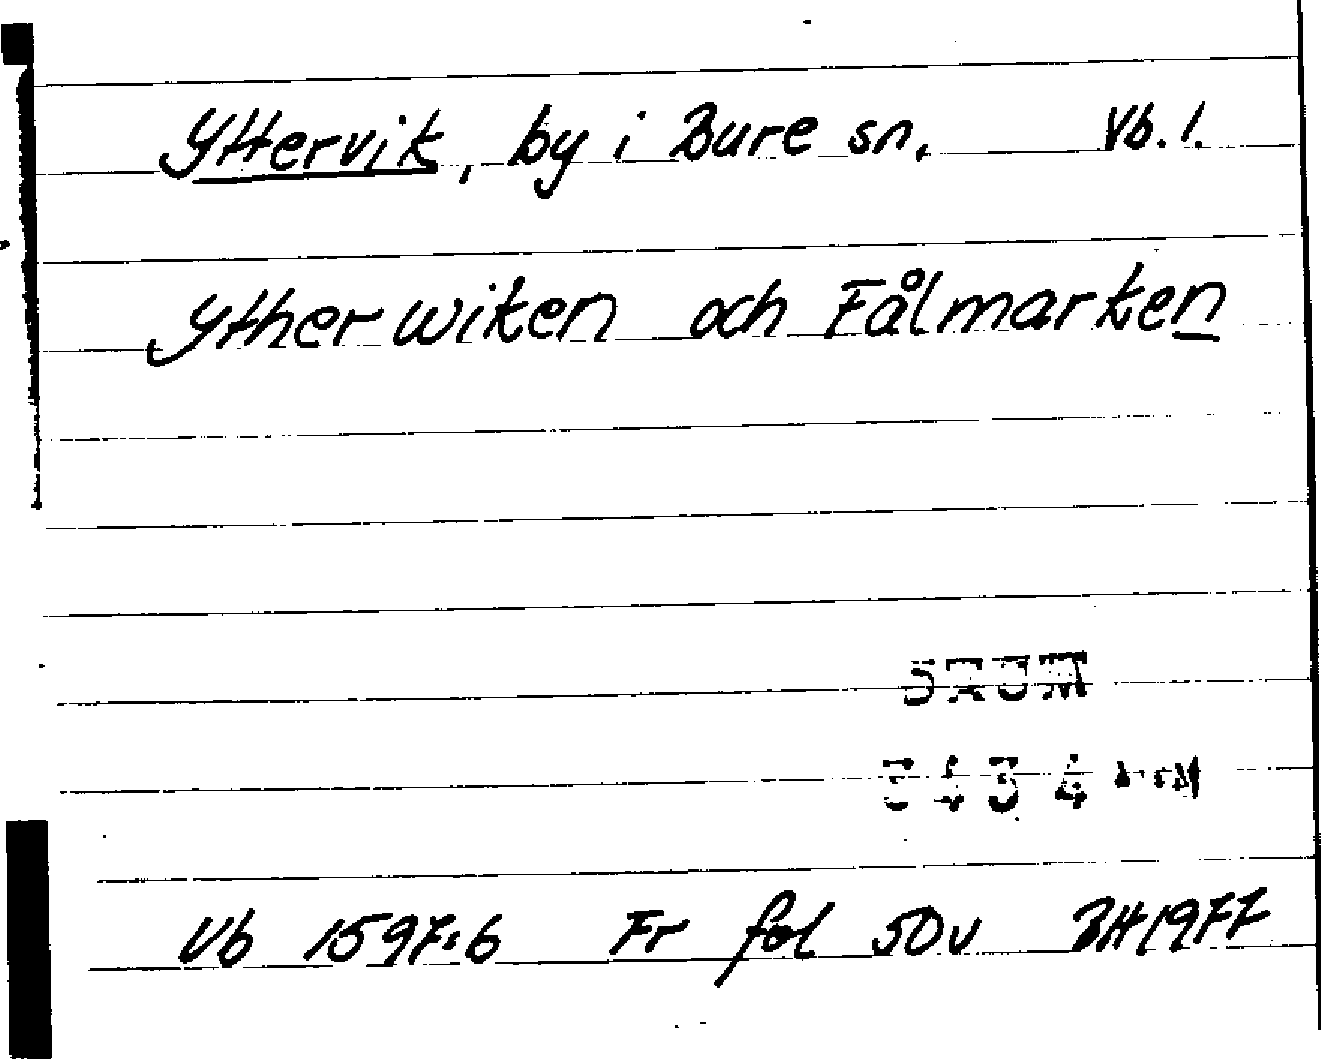 Yttervik, by i Bure sn. Vb. l.
Ytherwiken och Fålmarken
Vb 1597:6 Fr fol 50v BH1977